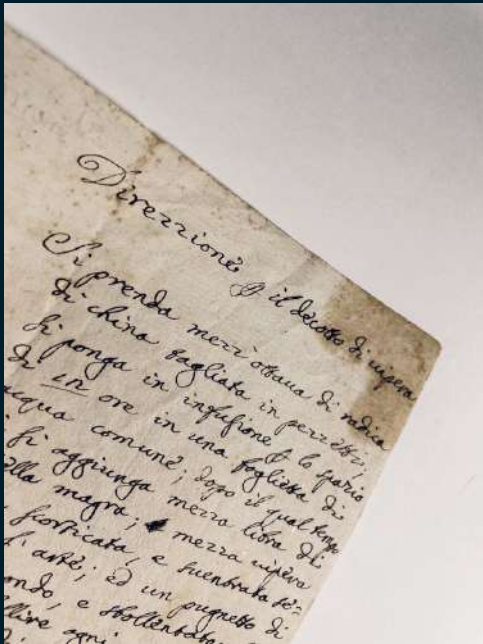 Direzzione ꝑ il decotto di vipera
Si prenda mezz'ottava di radica
di china tagliata in pezzetti;
si ponga in infusione ꝑ lo spazio
di 12 ore in una foglietta di
acqua comune; dopo il qual tempo
si aggiunga mezza libra di
ella magra; mezza vipera
scorticata, e sventrata se-
l'arte; ed un pugnetto di
ondo, e sbollentata
ogni